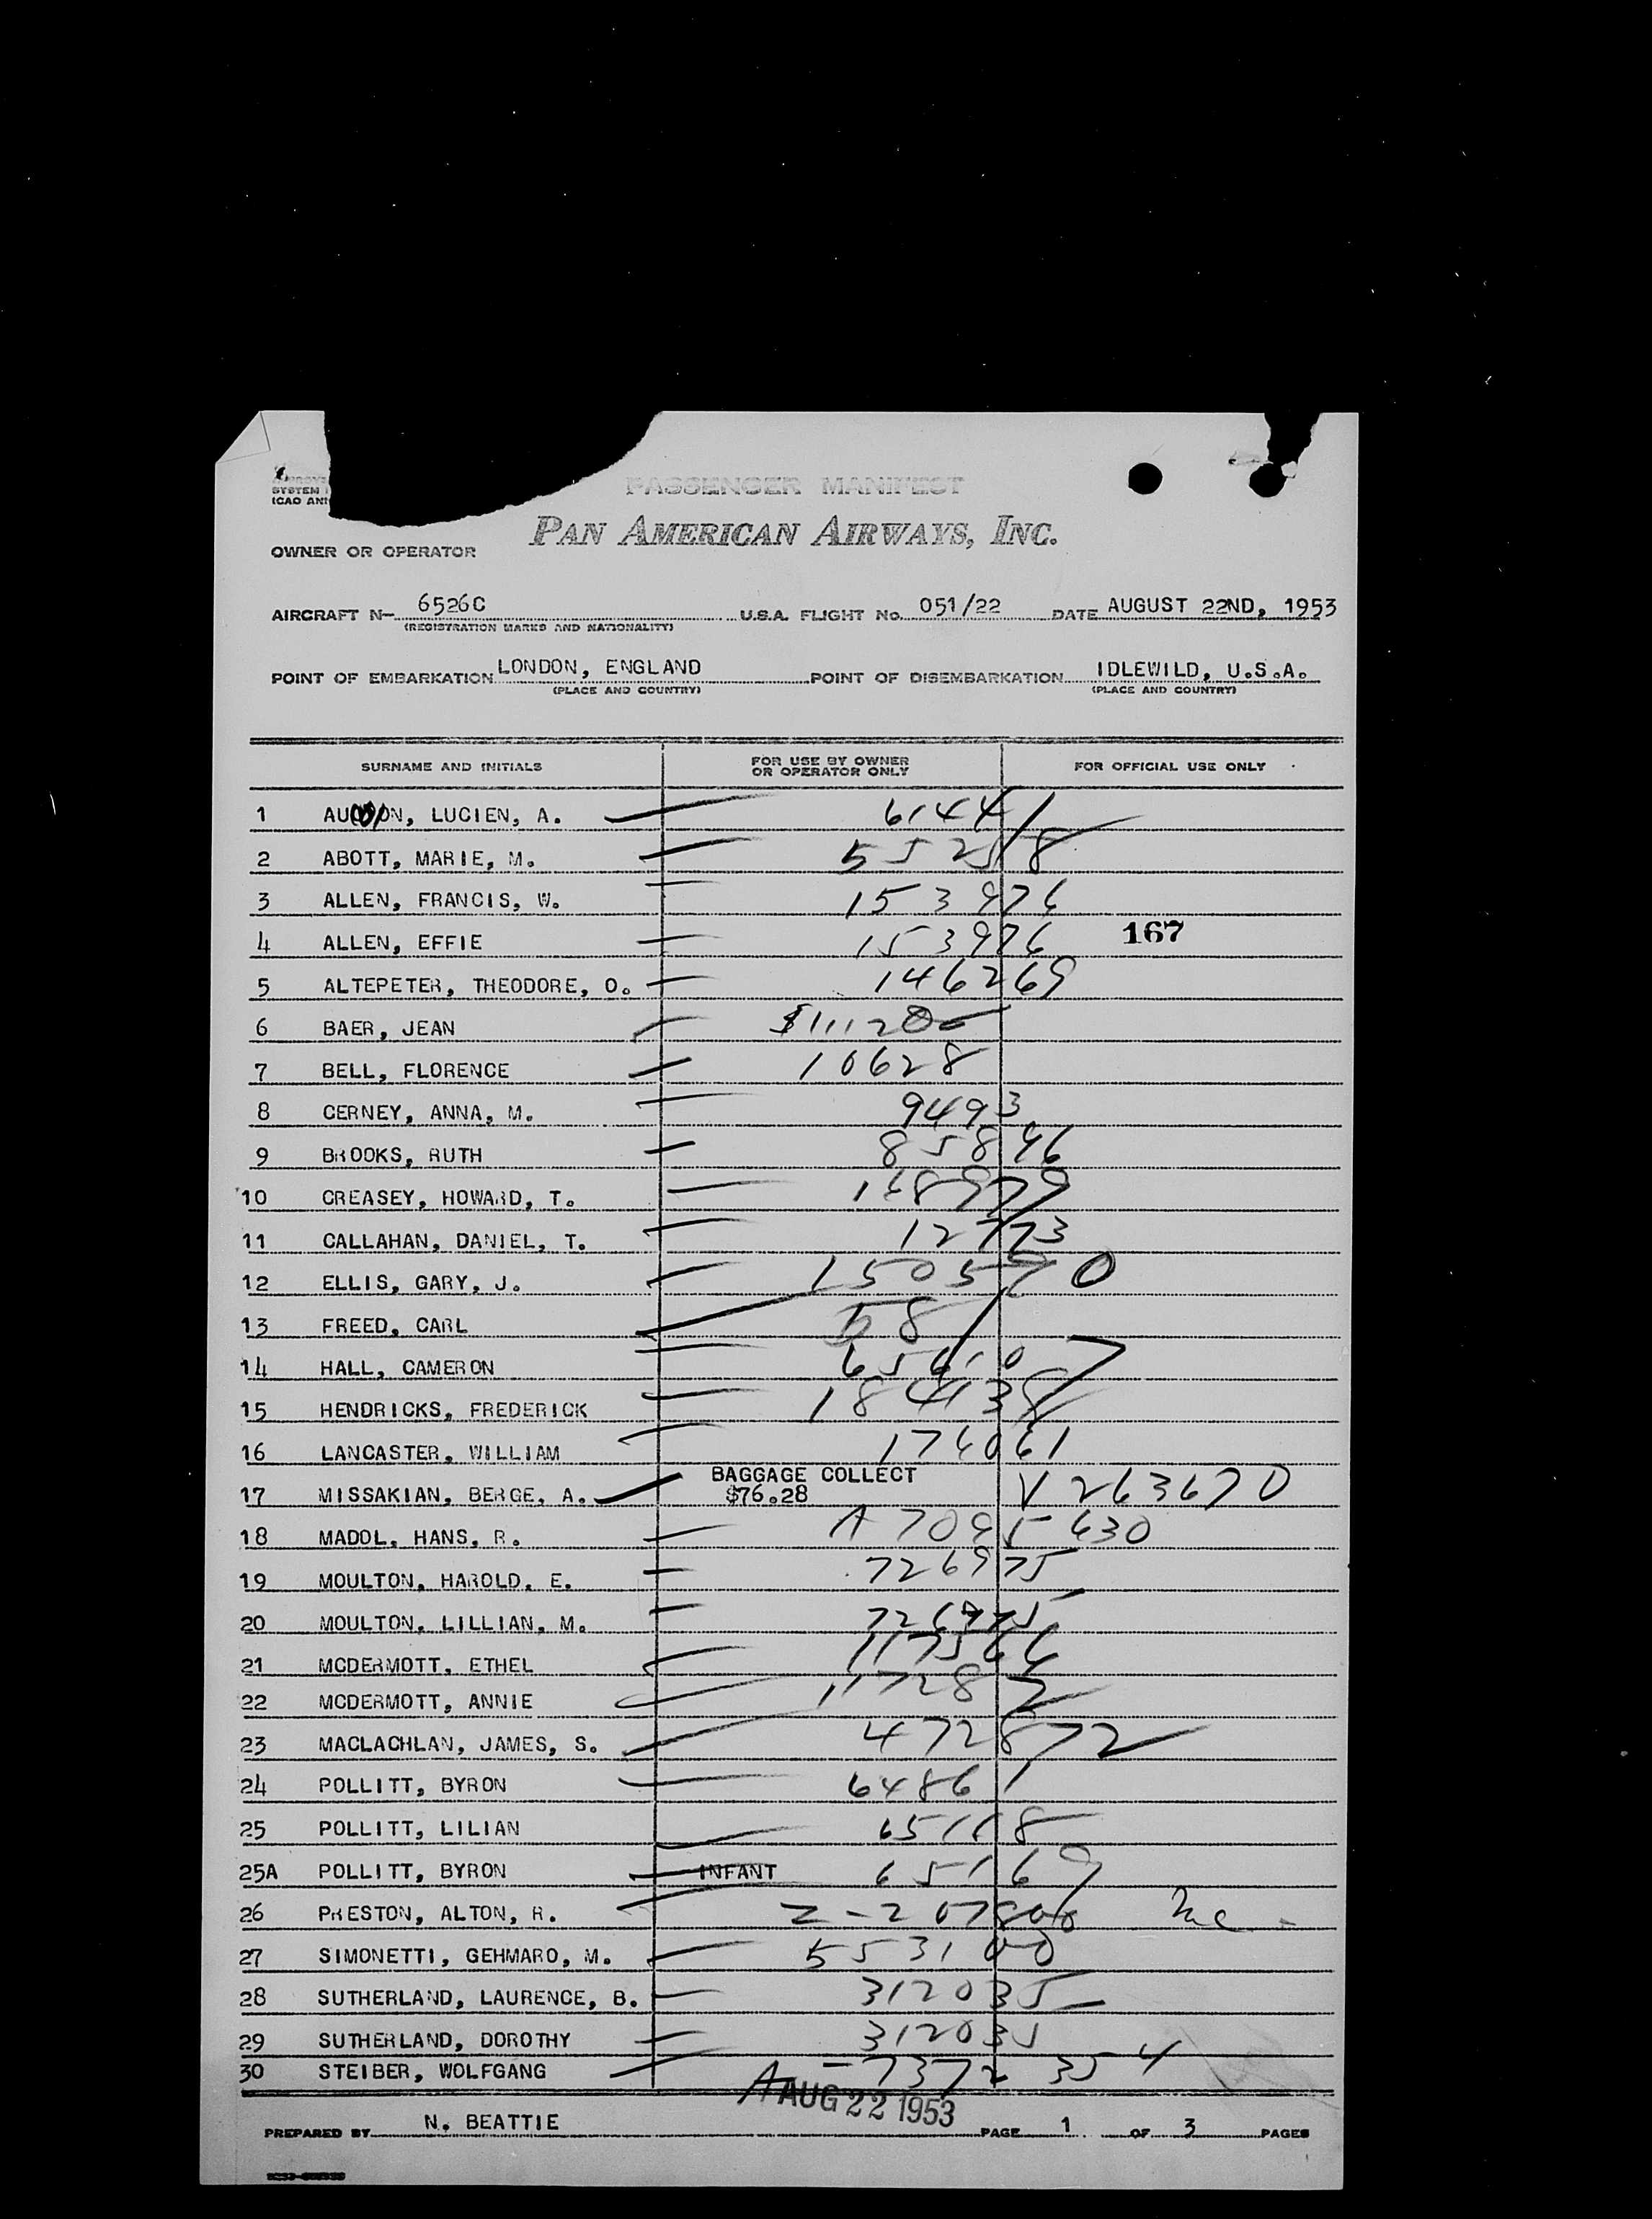 SYSTEM
ICAO AN
PASSENGER MANIFEST
PAN AMERICAN AIRWAYS, INC.
OWNER OR OPERATOR
AIRCRAFT N- 6526C U.S.A. FLIGHT No. 051/22 DATE AUGUST 22ND, 1953
(REGISTRATION MARKS AND NATIONALITY)
POINT OF EMBARKATION LONDON, ENGLAND POINT OF DISEMBARKATION IDLEWILD, U.S.A.
(PLACE AND COUNTRY) (PLACE AND COUNTRY)
SURNAME AND INITIALS FOR USE BY OWNER OR OPERATOR ONLY FOR OFFICIAL USE ONLY
1 LUCIEN, A.
2 ABOTT, MARIE, M.
3 ALLEN, FRANCIS, W. 153976
4 ALLEN, EFFIE 153976 167
5 ALTEPETER, THEODORE, O. 146269
6 BAER, JEAN
7 BELL, FLORENCE 10628
8 CERNEY, ANNA, M. 9493
9 BROOKS, RUTH 85846
10 CREASEY, HOWARD, T.
11 CALLAHAN, DANIEL, T. 12773
12 ELLIS, GARY, J. 150570
13 FREED, CARL 58
14 HALL, CAMERON 65610
15 HENDRICKS, FREDERICK 184438
16 LANCASTER, WILLIAM 174061
BAGGAGE COLLECT
17 MISSAKIAN, BERGE, A. $76.28 V 263670
18 MADOL, HANS, R. A 7095 630
19 MOULTON, HAROLD, E. 726975
20 MOULTON, LILLIAN, M. 726975
21 MCDERMOTT, ETHEL
22 MCDERMOTT, ANNIE 117282
23 MACLACHLAN, JAMES, S. 472872
24 POLLITT, BYRON 64861
25 POLLITT, LILIAN 65118
25A POLLITT, BYRON INFANT 65169
26 PRESTON, ALTON, R.
27 SIMONETTI, GEHMARO, M. 553100
28 SUTHERLAND, LAURENCE, B. 312035
29 SUTHERLAND, DOROTHY 312035
30 STEIBER, WOLFGANG A-7372 354
AUG 22 1953
PREPARED BY N. BEATTIE PAGE 1 OF 3 PAGES